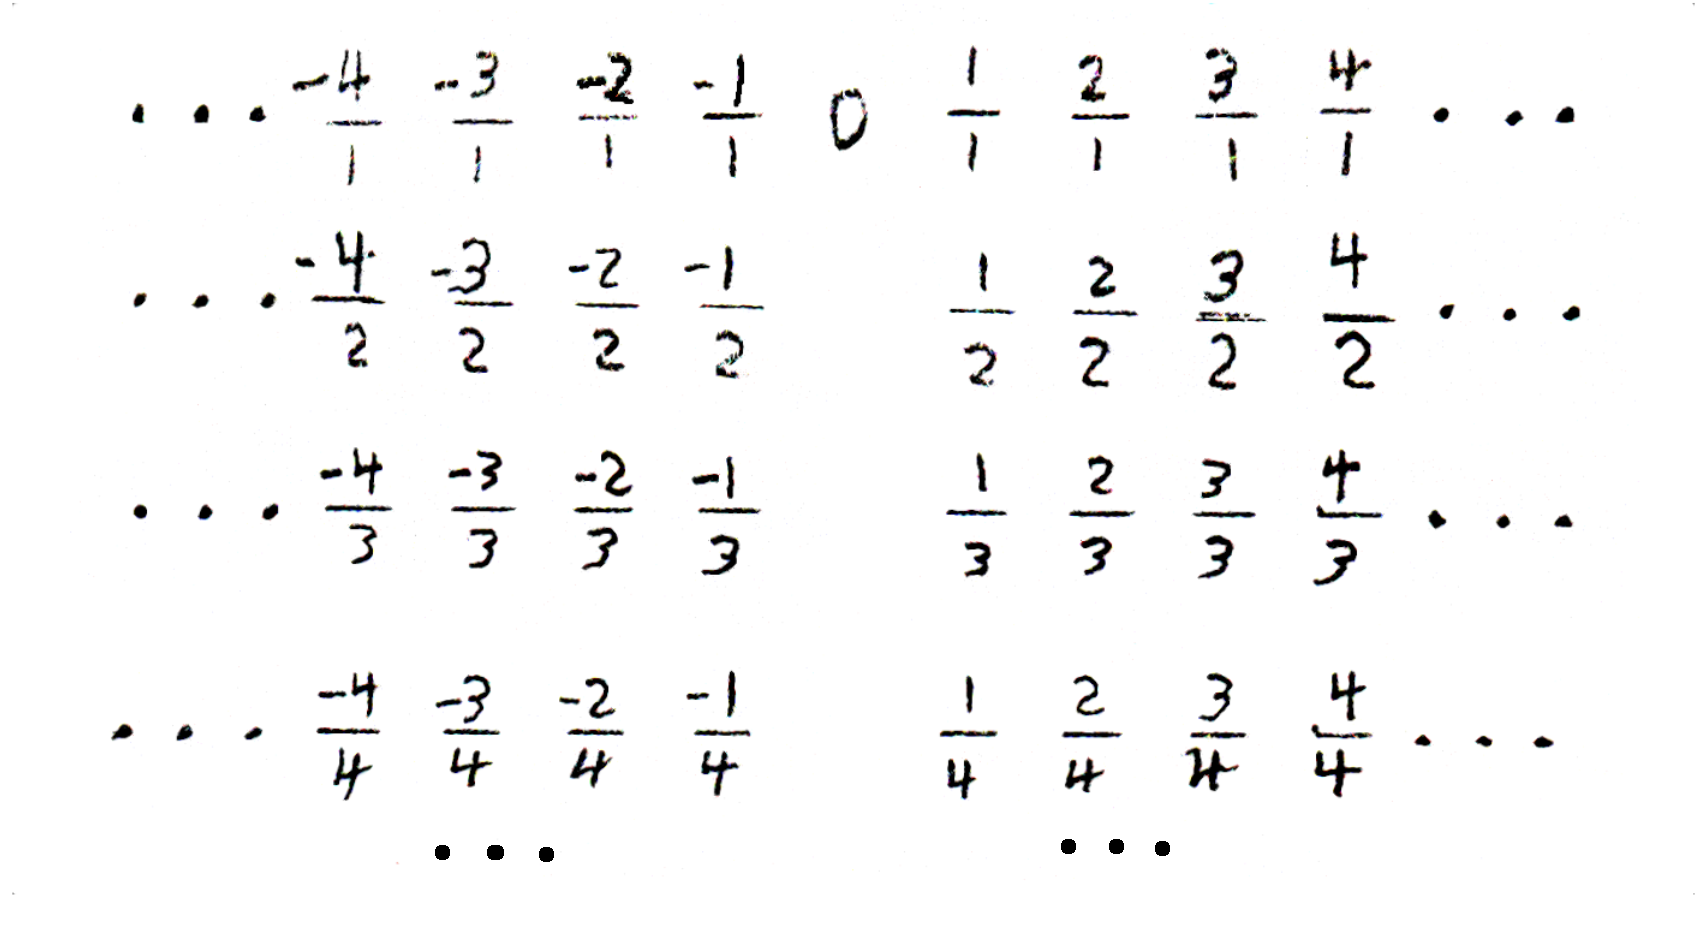 ... -4/1 -3/1 -2/1 -1/1 0 1/1 2/1 3/1 4/1 ...
... -4/2 -3/2 -2/2 -1/2 1/2 2/2 3/2 4/2 ...
... -4/3 -3/3 -2/3 -1/3 1/3 2/3 3/3 4/3 ...
... -4/4 -3/4 -2/4 -1/4 1/4 2/4 3/4 4/4 ...
... ...